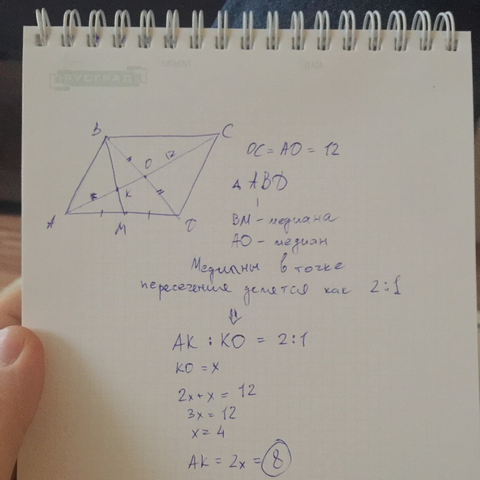 B
C
O
12
K
A
M
D
OC = AO = 12
Δ ABD
BM - медиана
AO - медиан
Медианы в точке
пересечения делятся как 2:1
⇓
AK : KO = 2:1
KO = x
2x + x = 12
3x = 12
x = 4
AK = 2x = 8